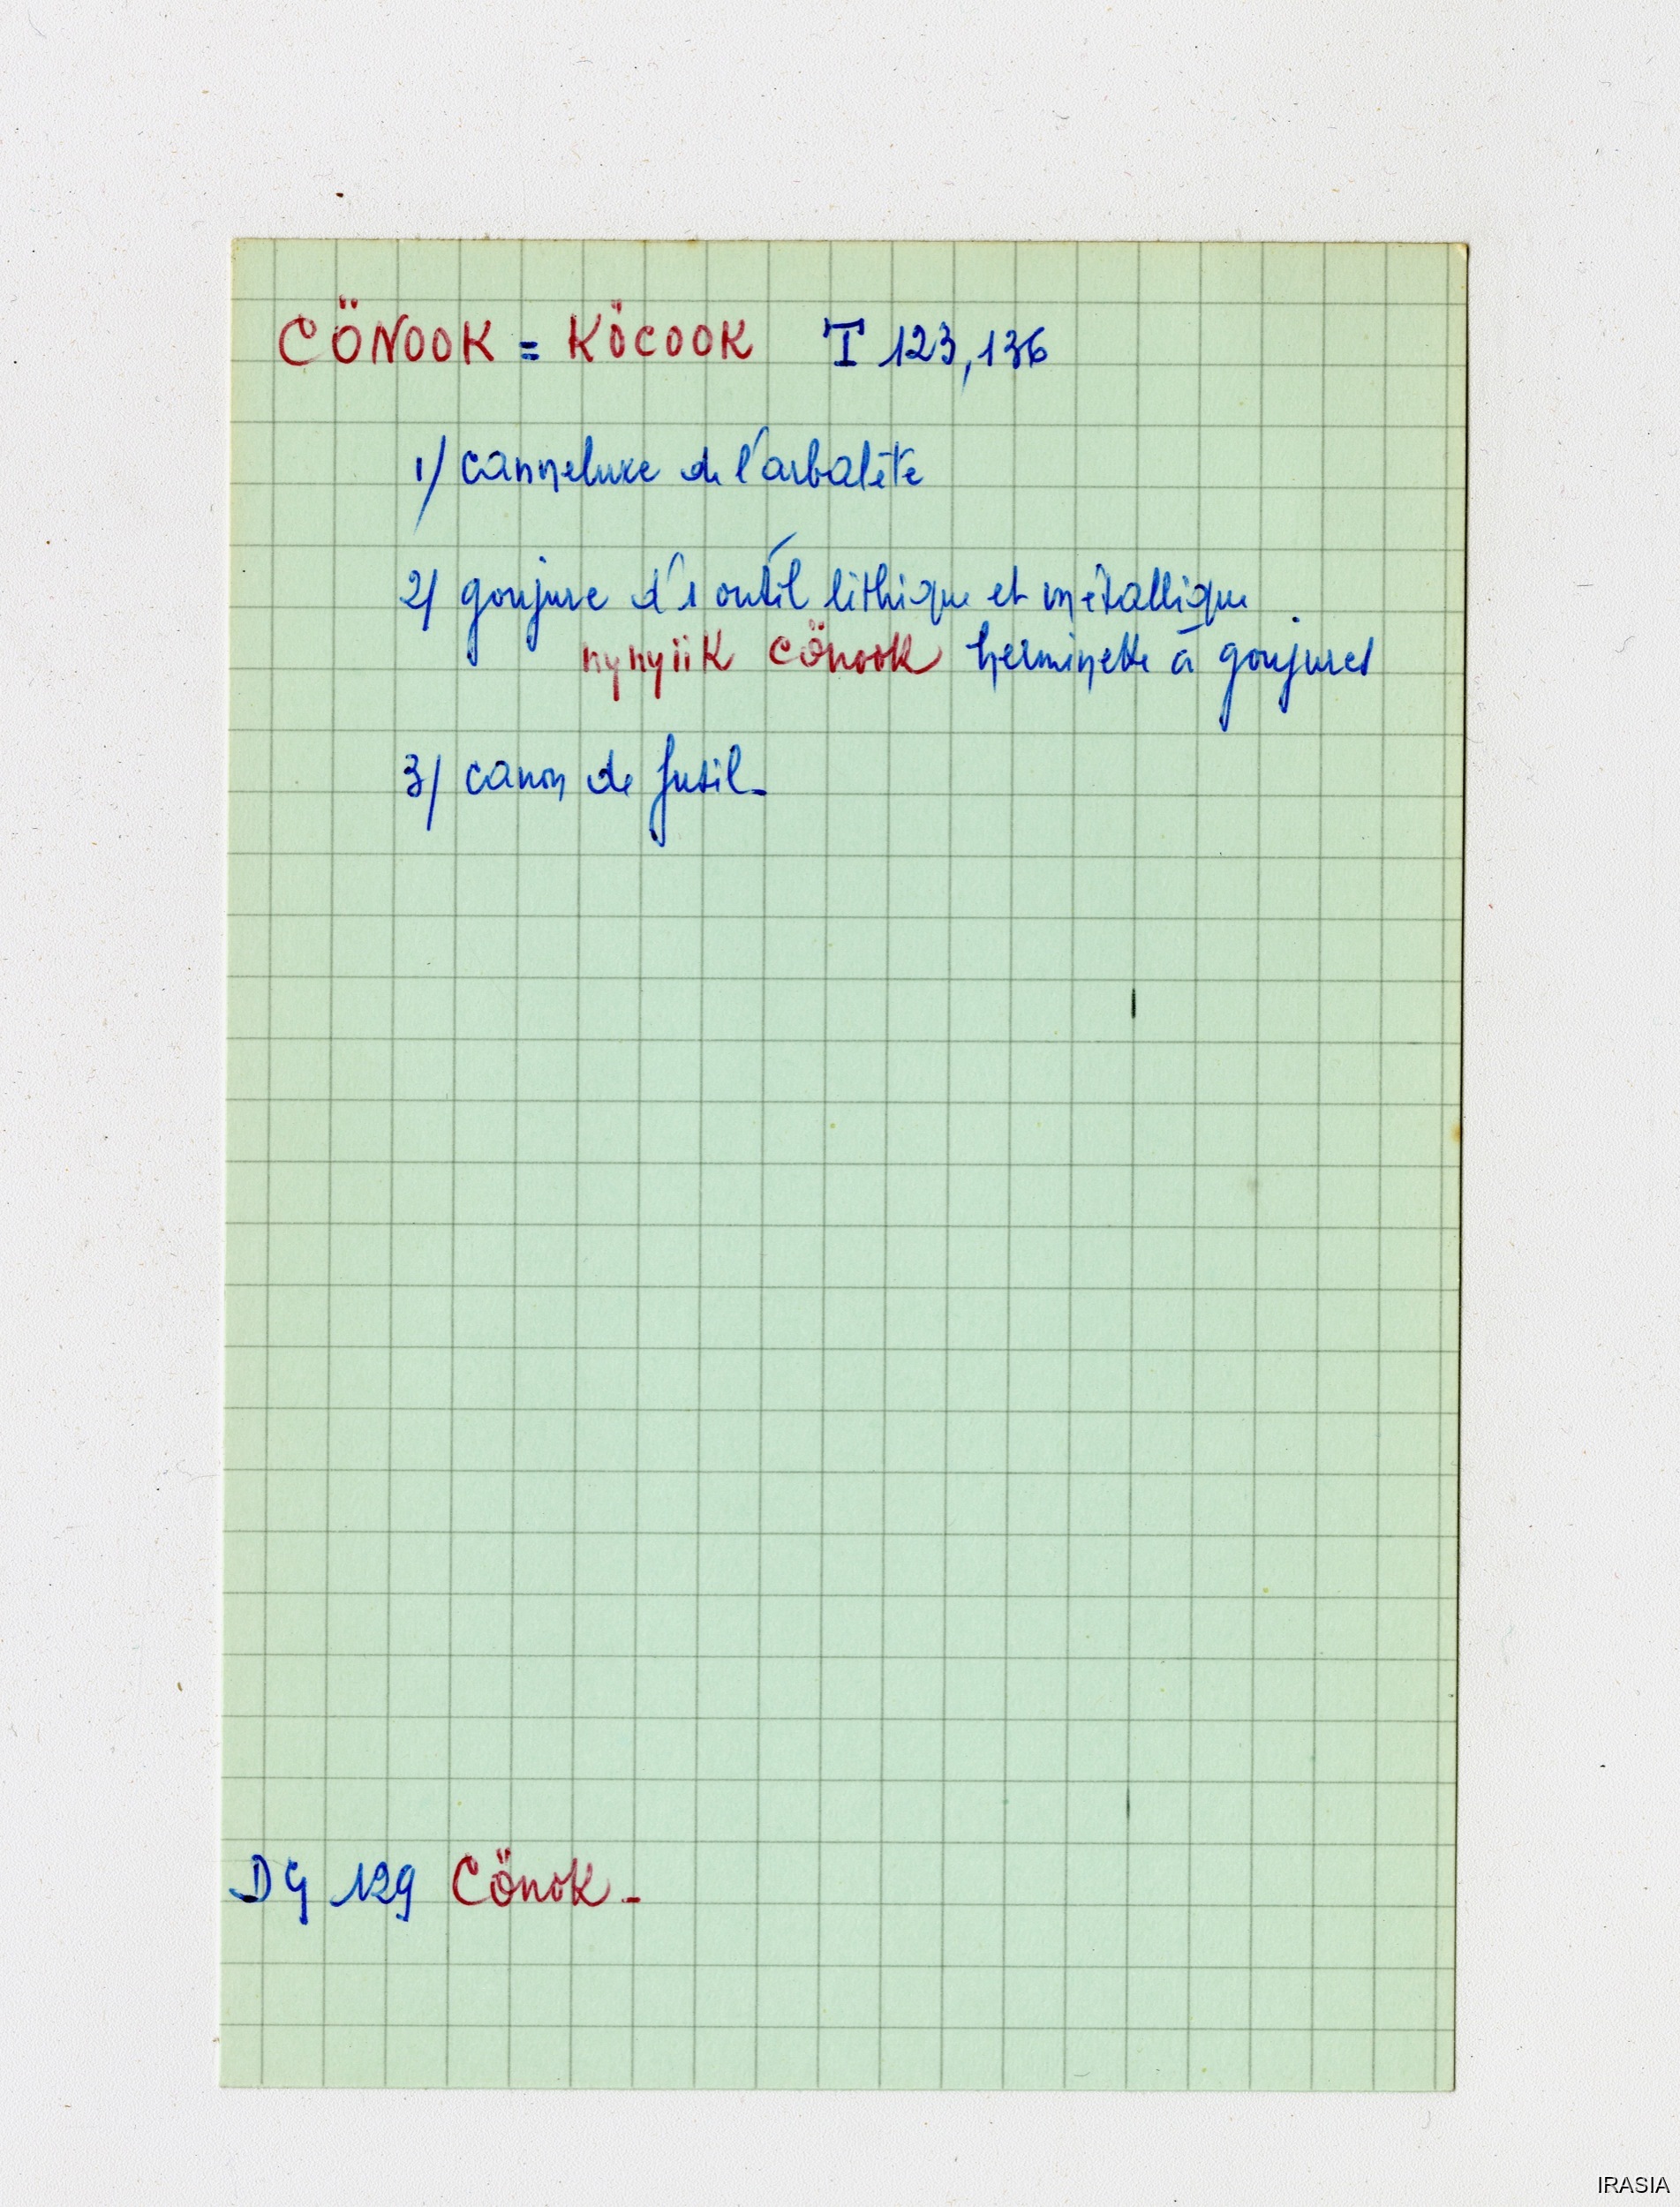 CÖNOOK = KÖCOOK T 123,136
1/ cannelure de l'arbalète
2/ goujure d'1 outil lithique et métallique
nynyiik cönook herminette à goujures
3/ canon de fusil_
DG 129 Cönok_
IRASIA